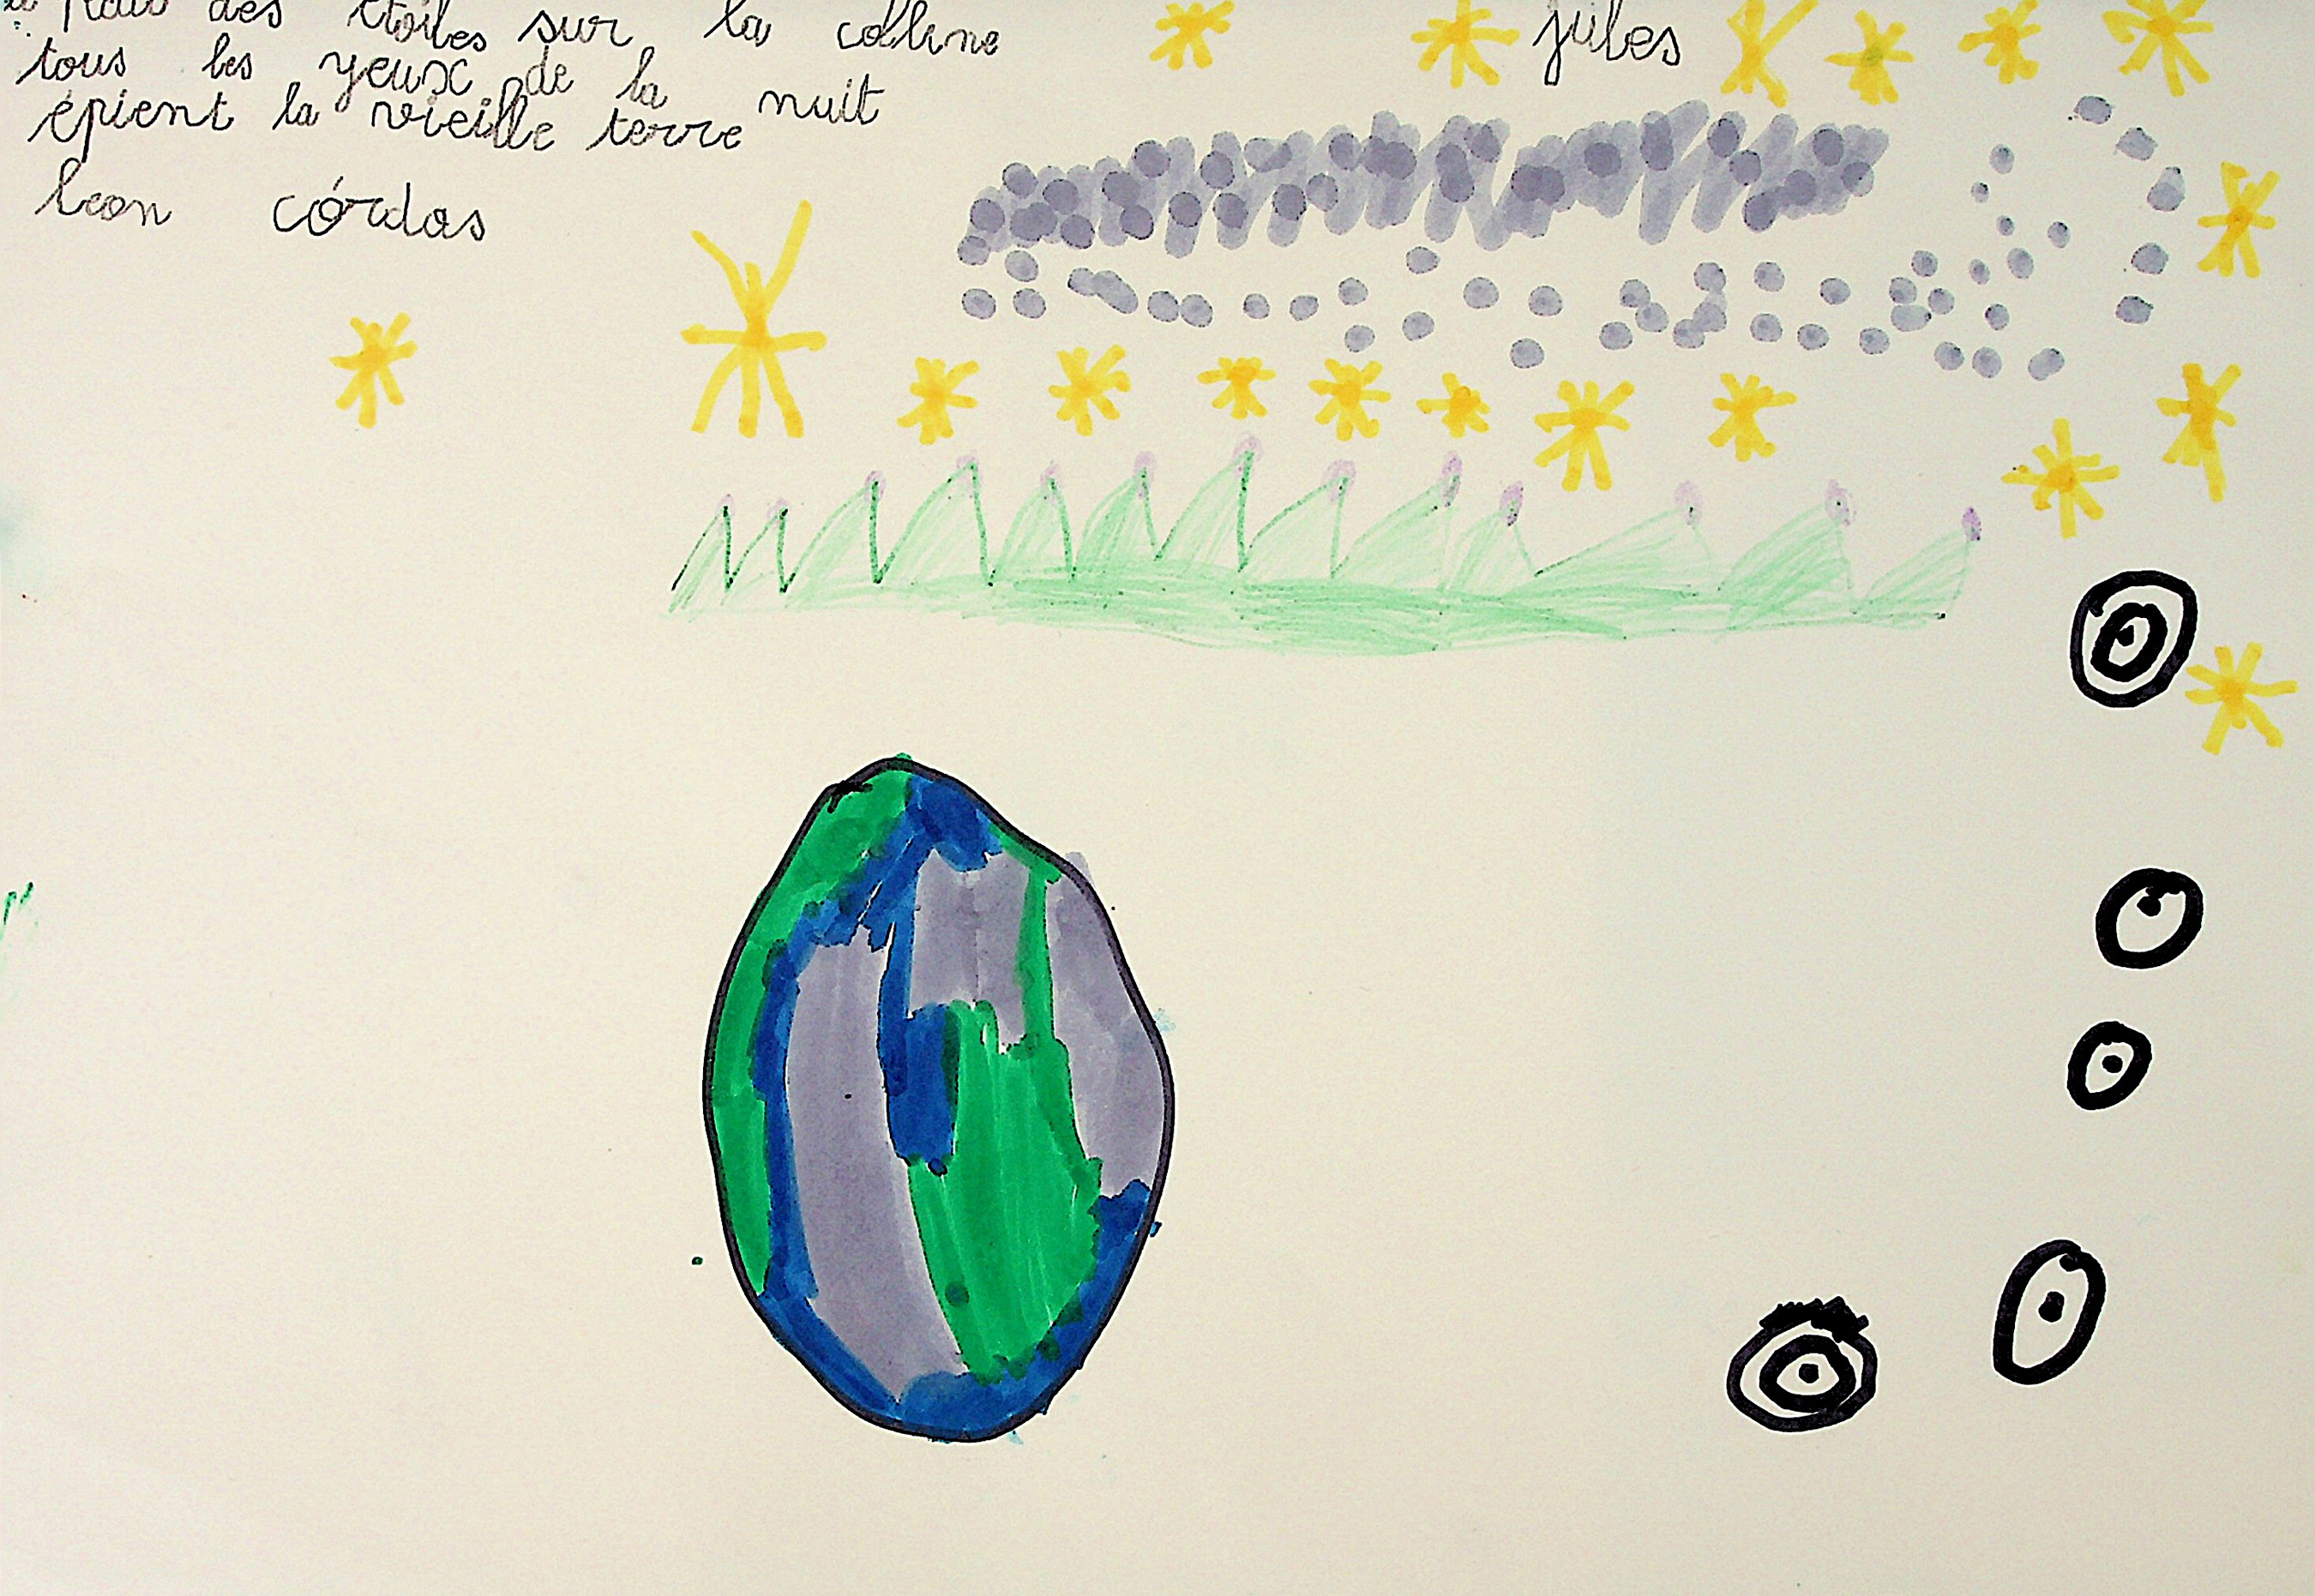 des étoiles sur la colline
jules
tous les yeux de la nuit
épient la vieille terre
leon córdas